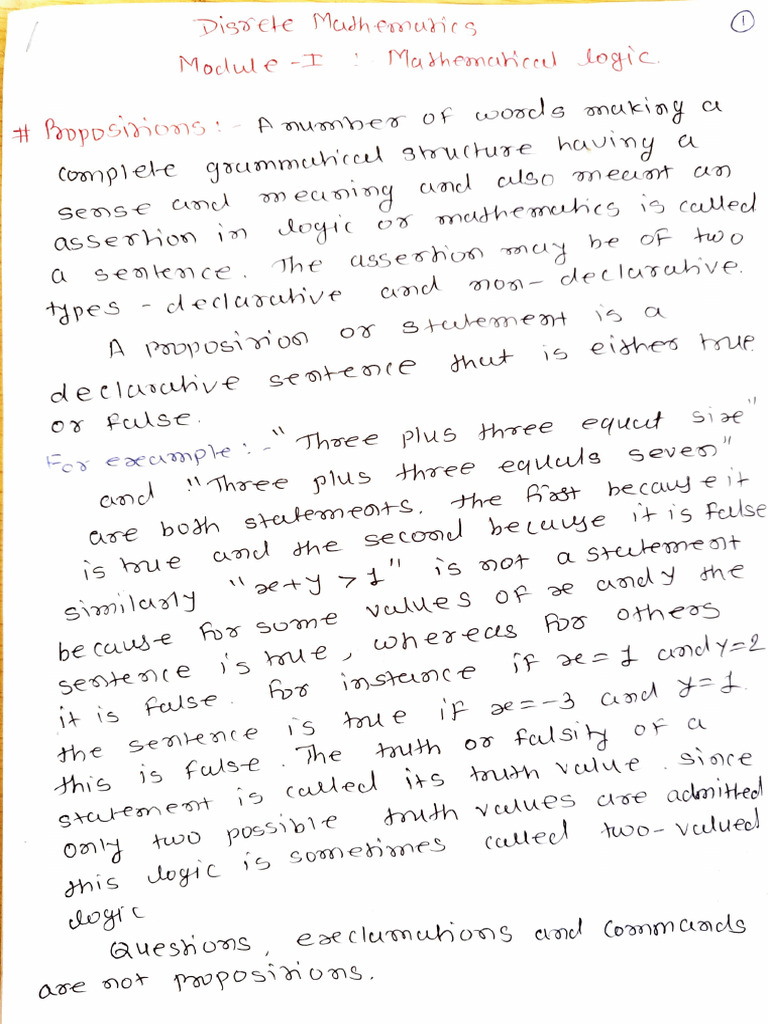 Discrete Mathematics
①
Module-I : Mathematical logic.
# Propositions:- A number of words making a
complete grammatical structure having a
sense and meaning and also meant an
assertion in logic or mathematics is called
a sentence. The assertion may be of two
types - declarative and non-declarative.
A proposition or statement is a
declarative sentence that is either true
or false.
For example:- "Three plus three equal six"
and "Three plus three equals seven"
are both statements. The first because it
is true and the second because it is false
similarly "x+y > 1" is not a statement
because for some values of x and y the
sentence is true, whereas for others
it is false. For instance if x=1 and y=2
the sentence is true if x=-3 and y=1.
this is false. The truth or falsity of a
statement is called its truth value. since
only two possible truth values are admitted
this logic is sometimes called two-valued
logic
Questions, exclamations and commands
are not propositions.